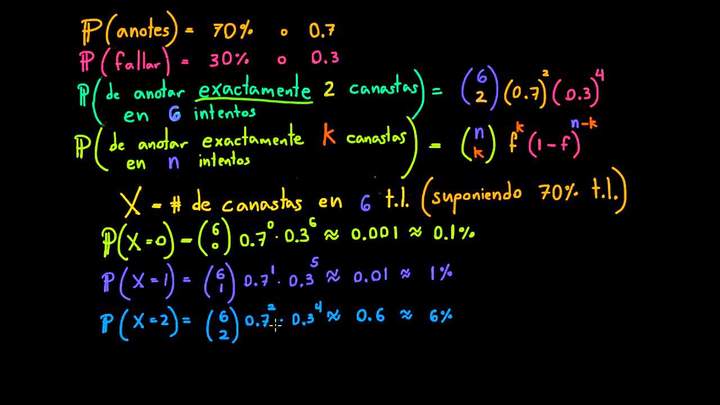 P(anotes) = 70% o 0.7
P(fallar) = 30% o 0.3
P(de anotar exactamente 2 canastas en 6 intentos) = (6 2) (0.7)^2 (0.3)^4
P(de anotar exactamente k canastas en n intentos) = (n k) f^k (1-f)^n-k
X = # de canastas en 6 t.l. (suponiendo 70% t.l.)
P(X=0) = (6 0) 0.7^0 · 0.3^6 ≈ 0.001 ≈ 0.1%
P(X=1) = (6 1) 0.7^1 · 0.3^5 ≈ 0.01 ≈ 1%
P(X=2) = (6 2) 0.7^2 · 0.3^4 ≈ 0.6 ≈ 6%